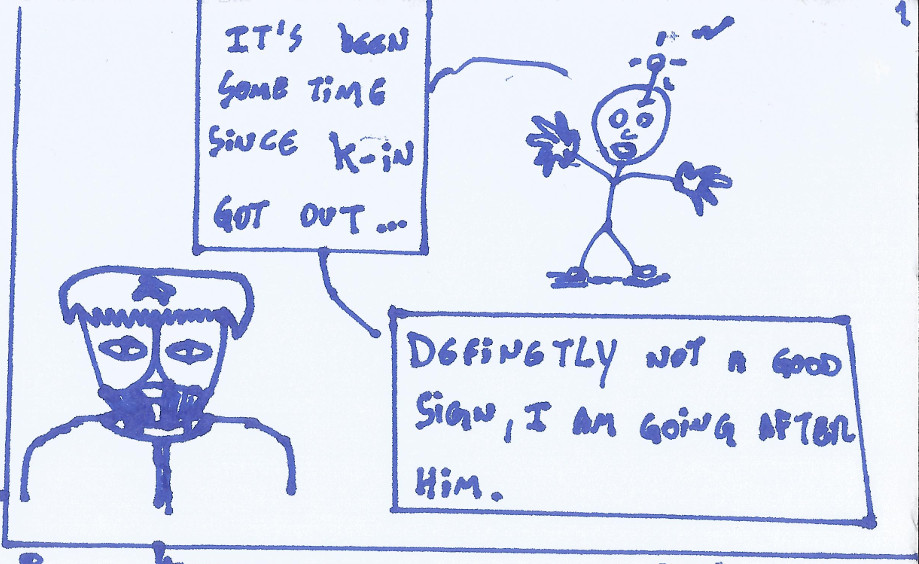 1
IT'S BEEN
SOME TIME
SINCE K-iN
GOT OUT...
DEFiNETLY NOT A GOOD
SiGN, I AM GOiNG AFTER
HiM.